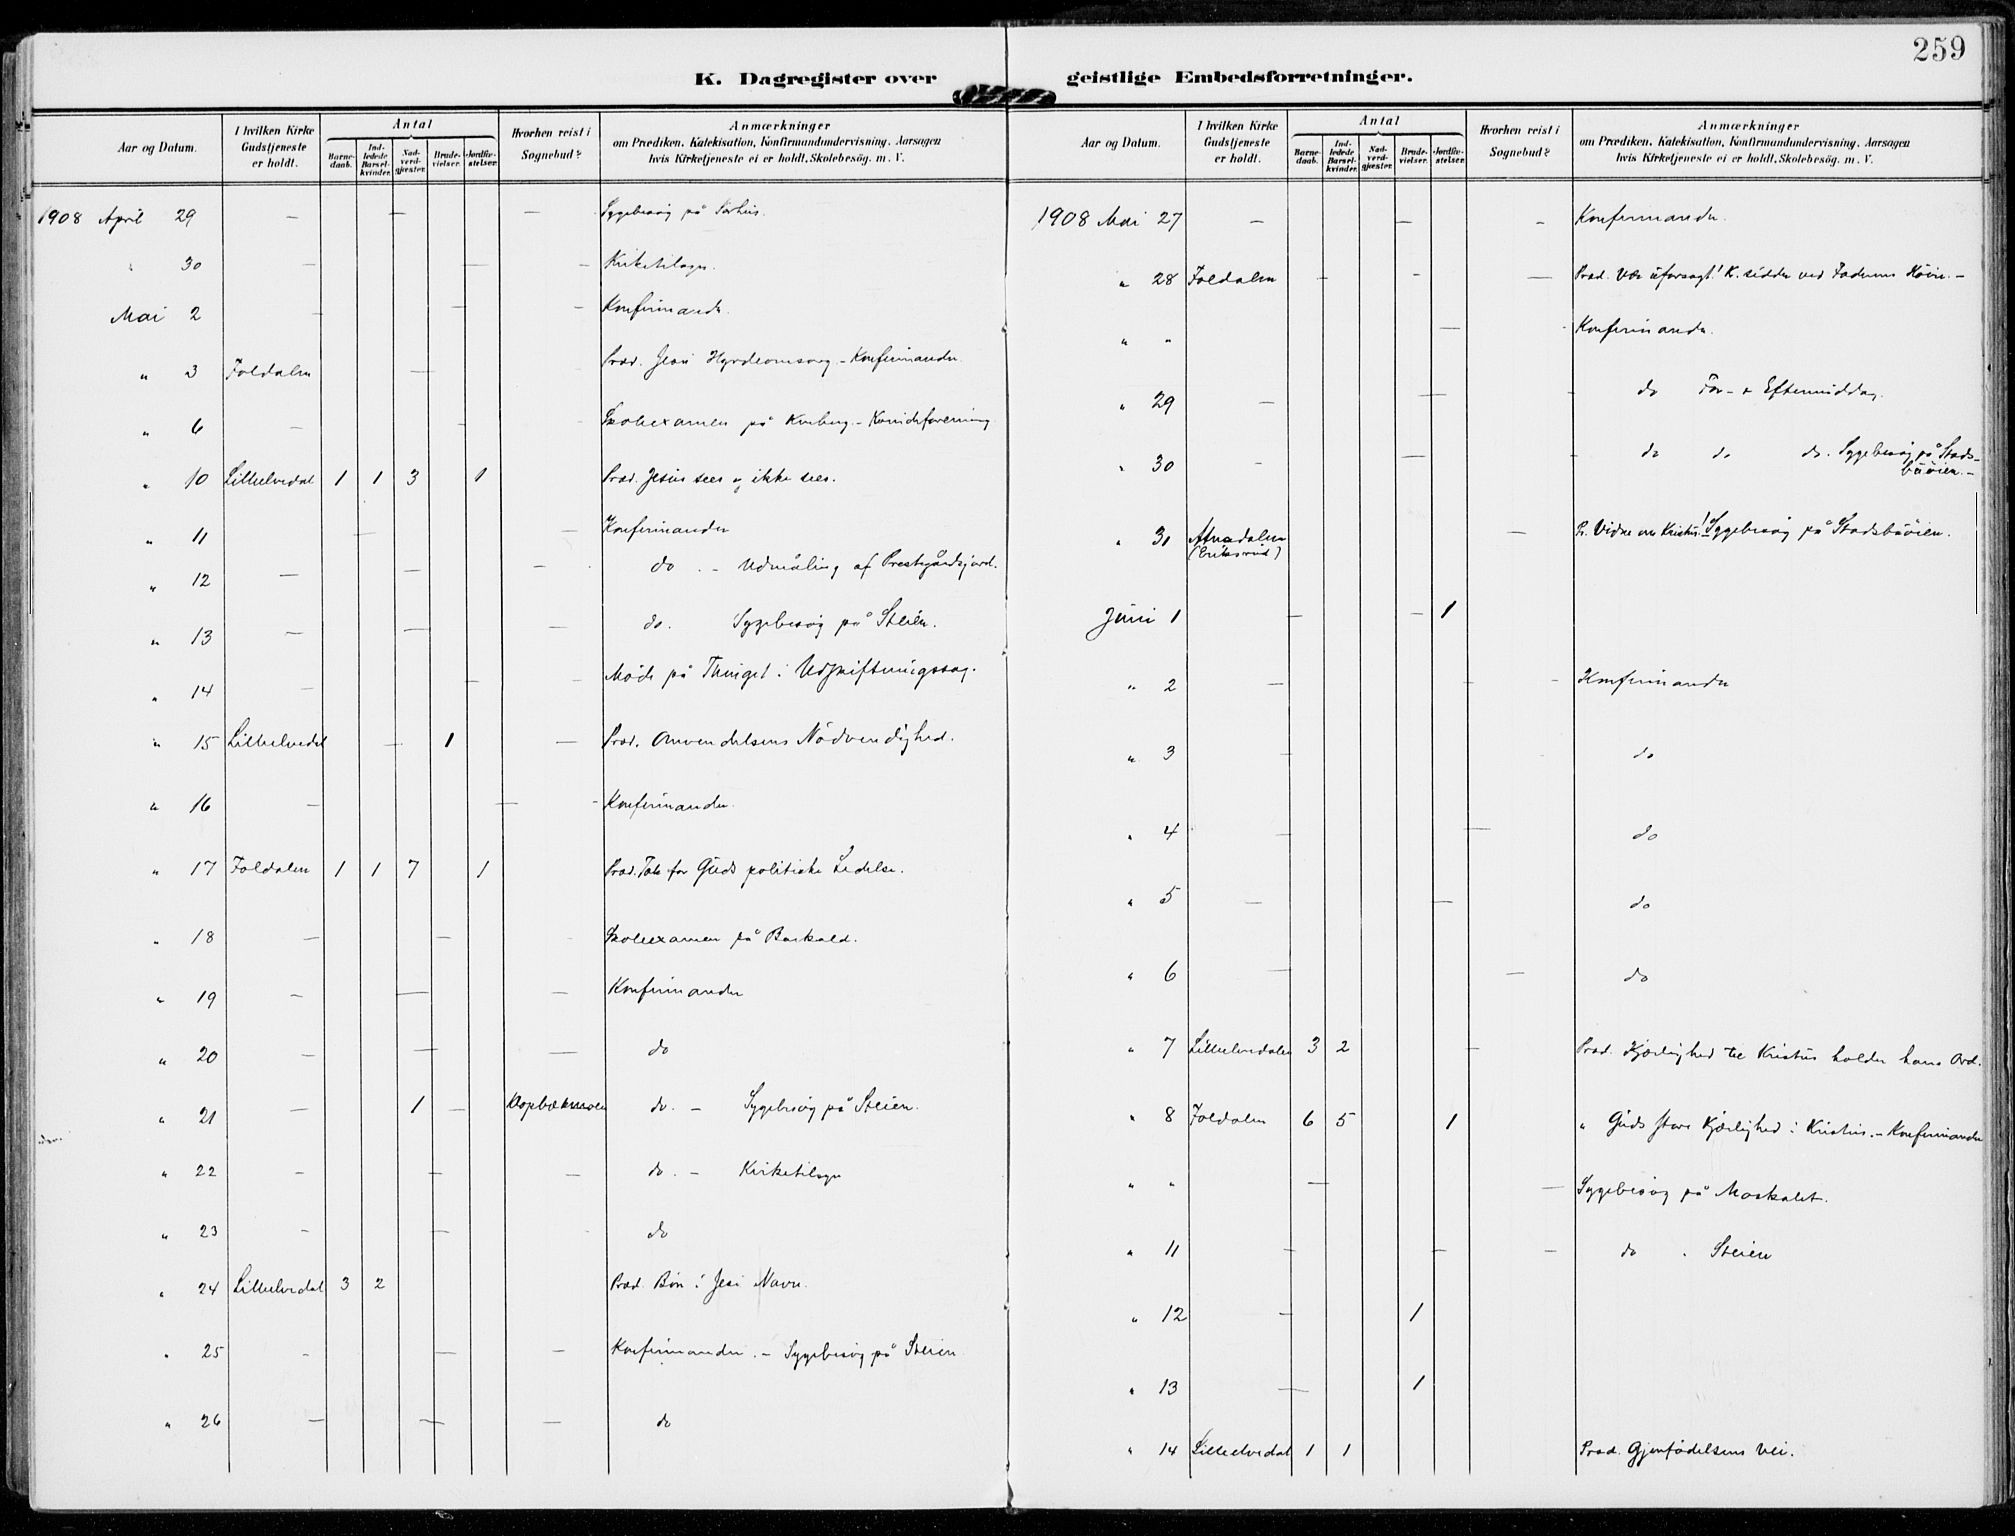 259
K. Dagregister over geistlige Embedsforretninger.
Aar og Datum.
I hvilken Kirke Gudstjeneste er holdt.
Antal
Barnedaab.
Indledede Barselkvinder.
Nadverdgjæster.
Brudevielser.
Jordfæstelser.
Hvorhen reist i Sognebud?
Anmærkninger
om Prædiken, Katekisation, Konfirmandundervisning, Aarsagen
hvis Kirketjeneste ei er holdt, Skolebesög. m. V.
1908 April 29 — — — Sygebesøg på
" 30 — — — Kirketilsyn.
Mai 2 — — — Konfirmander.
" 3 Foldalen — Præd. Jesu Hyrdeomsorg. – Konfirmander.
" 6 — — Skoleexamen på Kveberg. – Kvindeforening
" 10 Lilleelvedal 1 1 3 1 Præd. Jesus sees og ikke sees.
" 11 — — Konfirmander
" 12 — — — do . – Udmåling af Prestegårdsjord.
" 13 — — — do. Sygebesøg på Steien.
" 14 — — — Møde på Thinget i Udskiftningssag.
" 15 Lilleelvedal — 1 — Præd. Omvendelsens Nødvendighed.
" 16 — — — Konfirmander.
" 17 Foldalen 1 1 7 1 Præd. Tak for Guds politiske Ledelse.
" 18 — — Skoleexamen på Barkald.
" 19 — — — Konfirmander
" 20 — — — do
" 21 — 1 — Klopbækmoen do. – Sygebesøg på Steien.
" 22 — — — do. – Kirketilsyn
" 23 — — do
" 24 Lilleelvedal 3 2 Præd. Bøn i Jesu Navn.
" 25 – — — Konfirmander. – Sygebesøg på Steien.
" 26 — — — do
Aar og Datum.
I hvilken Kirke Gudstjeneste er holdt.
Antal
Barnedaab.
Indledede Barselkvinder.
Nadverdgjæster.
Brudevielser.
Jordfæstelser.
Hvorhen reist i Sognebud?
Anmærkninger
om Prædiken, Katekisation, Konfirmandundervisning, Aarsagen
hvis Kirketjeneste ei er holdt, Skolebesög. m. V.
1908 Mai 27 — — – Konfirmander.
" 28 Foldalen — – — Præd. Vær uforsagt! K. sidder ved Faderens Høire. –
" " — Konfirmander.
" 29 — — – do For- & Eftermiddag.
" 30 – — – do do do. Sygebesøg på Stads-
buøien. –
" 31 Atnedalen — Pr. Vidne om Kristus! Sygebesøg på Stadsbuøien.
(Eriksrud)
Juni 1 — — 1
" 2 — — – Konfirmander
" 3 — — do
" 4 — — do
" 5 — — do
" 6 — — do
" 7 Lilleelvedalen 3 2 — Præd. Kjærlighed til Kristus holder hans Ord.
" 8 Foldalen 6 5 1 " Guds store Kjærlighed i Kristus. – Konfirmander
" " — — Sygebesøg på Moskalet.
" 11 — — — do " Steien
" 12 — 1
" 13 — 1
" 14 Lilleelvedal 1 1 Præd. Gjenfødelsens Vei.